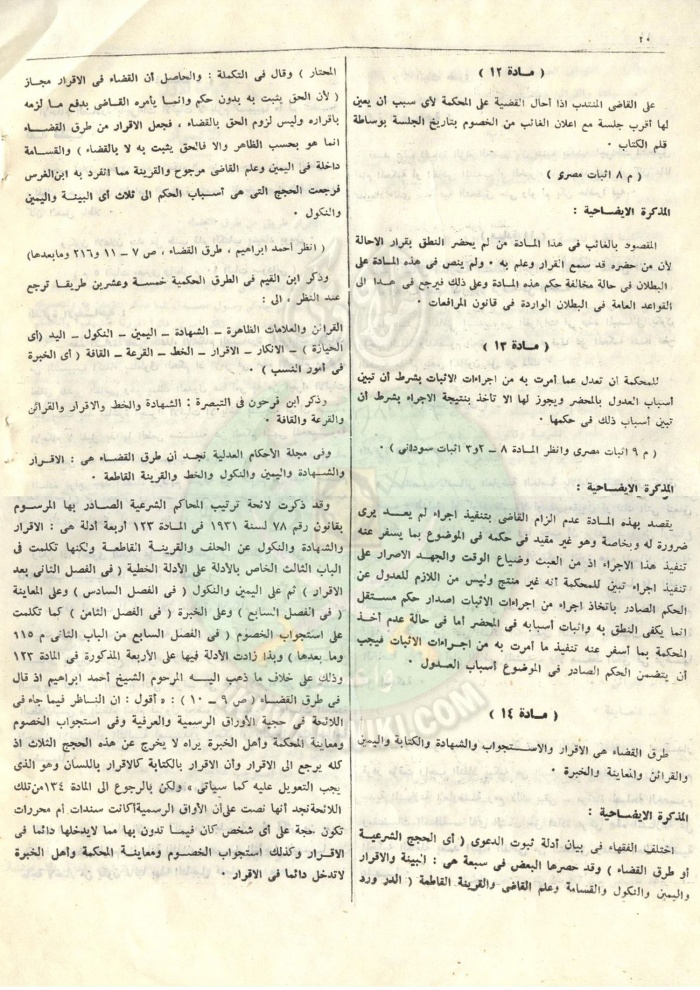 ٢٠
( مادة ١٢ )
على القاضى المنتدب اذا أحال القضية على المحكمة لأى سبب أن يعين
لها أقرب جلسة مع اعلان الغائب من الخصوم بتاريخ الجلسة بوساطة
قلم الكتاب ٠
( م ٨ اثبات مصرى )
المذكرة الايضاحية :
المقصود بالغائب فى هذا المادة من لم يحضر النطق بقرار الاحالة
لأن من حضره قد سمع القرار وعلم به ٠ ولم ينص فى هذه المادة على
البطلان فى حالة مخالفة حكم هذه المادة وعلى ذلك فيرجع فى هذا الى
القواعد العامة فى البطلان الواردة فى قانون المرافعات ٠
( مادة ١٣ )
للمحكمة ان تعدل عما أمرت به من اجراءات الاثبات بشرط أن تبين
أسباب العدول بالمحضر ويجوز لها الا تأخذ بنتيجة الاجراء بشرط أن
تبين أسباب ذلك فى حكمها ٠
( م ٩ اثبات مصرى وانظر المادة ٨ ــ ٢و٣ اثبات سودانى ) ٠
المذكرة الايضاحية :
يقصد بهذه المادة عدم الزام القاضى بتنفيذ اجراء لم يعد يرى
ضرورة له وبخاصة وهو غير مقيد فى حكمه فى الموضوع بما يسفر عنه
تنفيذ هذا الاجراء اذ من العبث وضياع الوقت والجهد الاصرار على
تنفيذ اجراء تبين للمحكمة أنه غير منتج وليس من اللازم للعدول عن
الحكم الصادر باتخاذ اجراء من اجراءات الاثبات إصدار حكم مستقل
انما يكفى النطق به واثبات أسبابه فى المحضر أما فى حالة عدم أخذ
المحكمة بما أسفر عنه تنفيذ ما أمرت به من اجراءات الاثبات فيجب
أن يتضمن الحكم الصادر فى الموضوع أسباب العدول ٠
( مادة ١٤ )
طرق القضاء هى الاقرار والاستجواب والشهادة والكتابة واليمين
والقرائن والمعاينة والخبرة ٠
المذكرة الايضاحية :
اختلف الفقهاء فى بيان أدلة ثبوت الدعوى ( أى الحجج الشرعية
أو طرق القضاء ) وقد حصرها البعض فى سبعة هى : البينة والاقرار
واليمين والنكول والقسامة وعلم القاضى والقرينة القاطعة ( الدر ورد
المحتار ) وقال فى التكملة : والحاصل أن القضاء فى الاقرار مجاز
( لأن الحق يثبت به بدون حكم وانما يأمره القاضى بدفع ما لزمه
باقراره وليس لزوم الحق بالقضاء ، فجعل الاقرار من طرق القضاء
انما هو بحسب الظاهر والا فالحق يثبت به لا بالقضاء ) والقسامة
داخلة فى اليمين وعلم القاضى مرجوح والقرينة مما انفرد به ابن الغرس
فرجعت الحجج التى هى أسباب الحكم الى ثلاث أى البينة واليمين
والنكول ٠
( انظر أحمد ابراهيم ، طرق القضاء ، ص ٧ ــ ١١ و٢١٦ ومابعدها)
وذكر ابن القيم فى الطرق الحكمية خمسة وعشرين طريقا ترجع
عند النظر ، الى :
القرائن والعلامات الظاهرة ــ الشهادة ــ اليمين ــ النكول ــ اليد (أى
الحيازة ) ــ الانكار ــ الاقرار ــ الخط ــ القرعة ــ القافة ( أى الخبرة
فى أمور النسب ) ٠
وذكر ابن فرحون فى التبصرة : الشهادة والخط والاقرار والقرائن
والقرعة والقافة ٠
وفى مجلة الأحكام العدلية نجد أن طرق القضاء هى : الاقرار
والشهادة واليمين والنكول والخط والقرينة القاطعة ٠
وقد ذكرت لائحة ترتيب المحاكم الشرعية الصادر بها المرسوم
بقانون رقم ٧٨ لسنة ١٩٣١ فى المادة ١٢٣ أربعة أدلة هى : الاقرار
والشهادة والنكول عن الحلف والقرينة القاطعة ولكنها تكلمت فى
الباب الثالث الخاص بالأدلة على الأدلة الخطية ( فى الفصل الثانى بعد
الاقرار ) ثم على اليمين والنكول ( فى الفصل السادس ) وعلى المعاينة
( فى الفصل السابع ) وعلى الخبرة ( فى الفصل الثامن ) كما تكلمت
على استجواب الخصوم ( فى الفصل السابع من الباب الثانى م ١١٥
وما بعدها ) وبذا زادت الأدلة فيها على الأربعة المذكورة فى المادة ١٢٣
وذلك على خلاف ما ذهب اليه المرحوم الشيخ أحمد ابراهيم اذ قال
فى طرق القضاء ( ص ٩ ــ ١٠ ) : « أقول : ان الناظر فيما جاء فى
اللائحة فى حجية الأوراق الرسمية والعرفية وفى استجواب الخصوم
ومعاينة المحكمة وأهل الخبرة يراه لا يخرج عن هذه الحجج الثلاث اذ
كله يرجع الى الاقرار وأن الاقرار بالكتابة كالاقرار باللسان وهو الذى
يجب التعويل عليه كما سيأتى » ولكن بالرجوع الى المادة ١٣٤ من تلك
اللائحة نجد أنها نصت على أن الأوراق الرسمية أكانت سندات أم محررات
تكون حجة على أى شخص كان فيما تدون بها مما لا يدخلها دائما فى
الاقرار وكذلك استجواب الخصوم ومعاينة المحكمة وأهل الخبرة
لا تدخل دائما فى الاقرار ٠